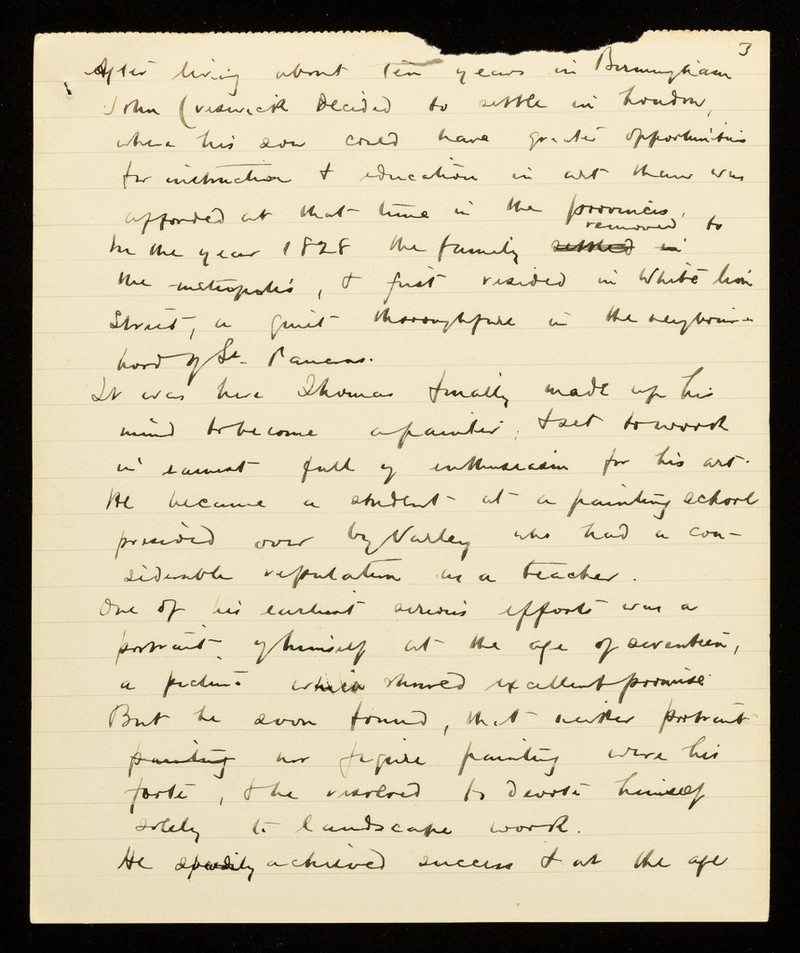 3
After living about ten years in Birmingham
John Creswick decided to settle in London,
where his son could have greater opportunities
for instruction & education in art than was
afforded at that time in the provinces,
removed to
In the year 1828 the family settled in
the metropolis, & first resided in White Lion
Street, a quiet thoroughfare in the neighbour-
hood of St. Pancras.
It was here Thomas finally made up his
mind to become a painter, & set to work
in earnest full of enthusiasm for his art.
He became a student at a painting school
presided over by Varley who had a con-
siderable reputation as a teacher.
One of his earliest serious efforts was a
portrait of himself at the age of seventeen,
a picture which showed excellent promise.
But he soon found, that neither portrait
painting nor figure painting were his
forte, & he resolved to devote himself
solely to landscape work.
He speedily achieved success & at the age